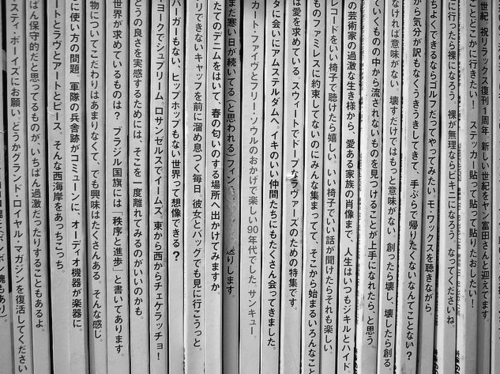 祝!リラックス復刊1周年。新しい世紀をヤン富田さんと迎えてます
に行きたい! ステッカー貼って貼って貼りたおしたい!
に行ったら裸になろう。裸が無理ならビキニになろう。なってくださいね
ちよくできるならゴルフだってやってみたい。モ・ワックスを聴きながら、
から気分が訳もなくうきうきしてきて、手ぶらで帰りたくないなんてことない?
なければ意味がない 壊すだけではもっと意味がない 創ったら壊し、壊したら創る
ていくものの中から流されないものを見つけることが上手になれたら、と思う
の芸術家の過激な生き様から、愛ある家族の肖像まで、人生はいつもジキルとハイド
レコードをいい椅子で聴けたら嬉しい。いい椅子でいい話が聞けたらそれも楽しい、
ものファミレスに約束してないのにみんな集まってて、そこから始まるいろんなこと
は愛を求めている。スウィートでドープなラヴァーズのための特集です。
キに会いにアムステルダムへ、イキのいい仲間たちにもたくさん会ってきました。
カート・ファイヴとフリー・ソウルのおかげで楽しい90年代でした。サンキュー。
まだ寒い日が続いてる(と思われる)フィン りします
たてのデニムをはいて、春の匂いのする場所へ出かけてみますか
リできないキャップを前に溜め息つく毎日 彼女とバッグでも見に行こうっと。
バーガーもない、ヒップホップもない世界って想像できる?
ヨークでシュプリーム、ロサンゼルスでイームズ。東から西からチェケラッチョ!
どうの良さを実感するためには、そこを一度離れてみるのがいいのかも。
世界が求めているものは? ブラジル国旗には「秩序と進歩」と書いてあります
物についてこだわりはあまりなくて、でも興味はたくさんある、そんな感じ。
に使い方の問題 軍隊の兵舎跡がコミューンに、オーディオ機器が楽器に、
ートとラヴとアートとピース、そんな西海岸をあっちこっち、
ぱん保守的だと思ってるものが、いちばん過激だったりすることもあるよ
スティ・ボーイズにお願い。どうかグランド・ロイヤル・マガジンを復活してください